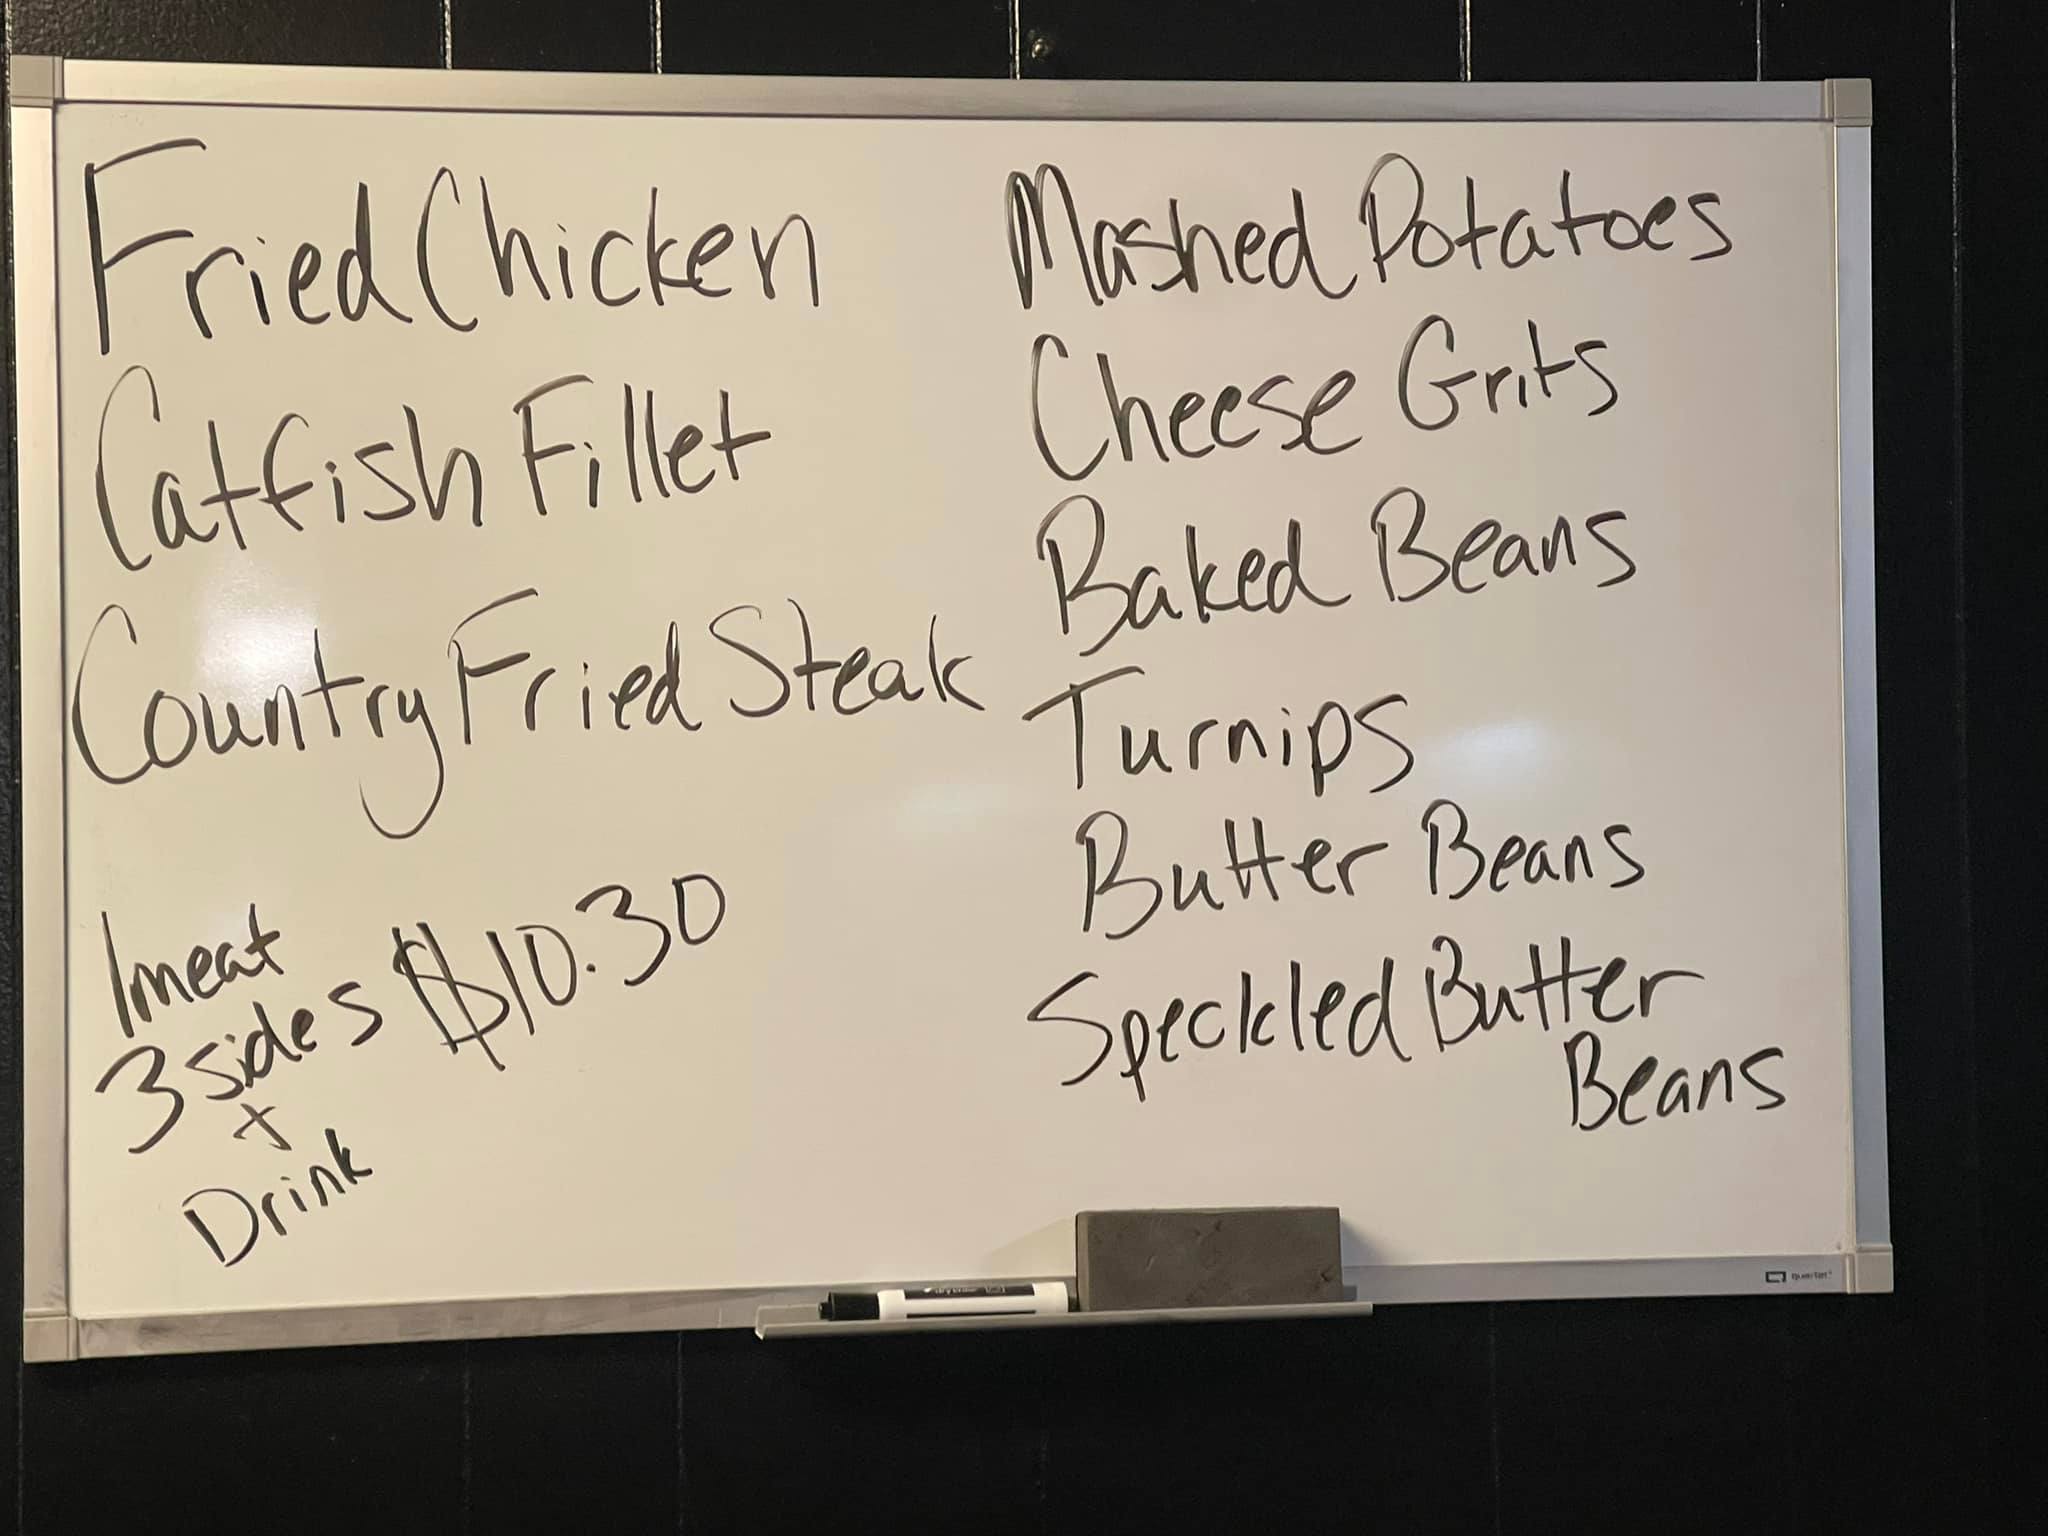 Fried Chicken
Catfish Fillet
Country Fried Steak
1 meat
3 sides $10.30
+
Drink
Mashed Potatoes
Cheese Grits
Baked Beans
Turnips
Butter Beans
Speckled Butter
Beans
Quartet